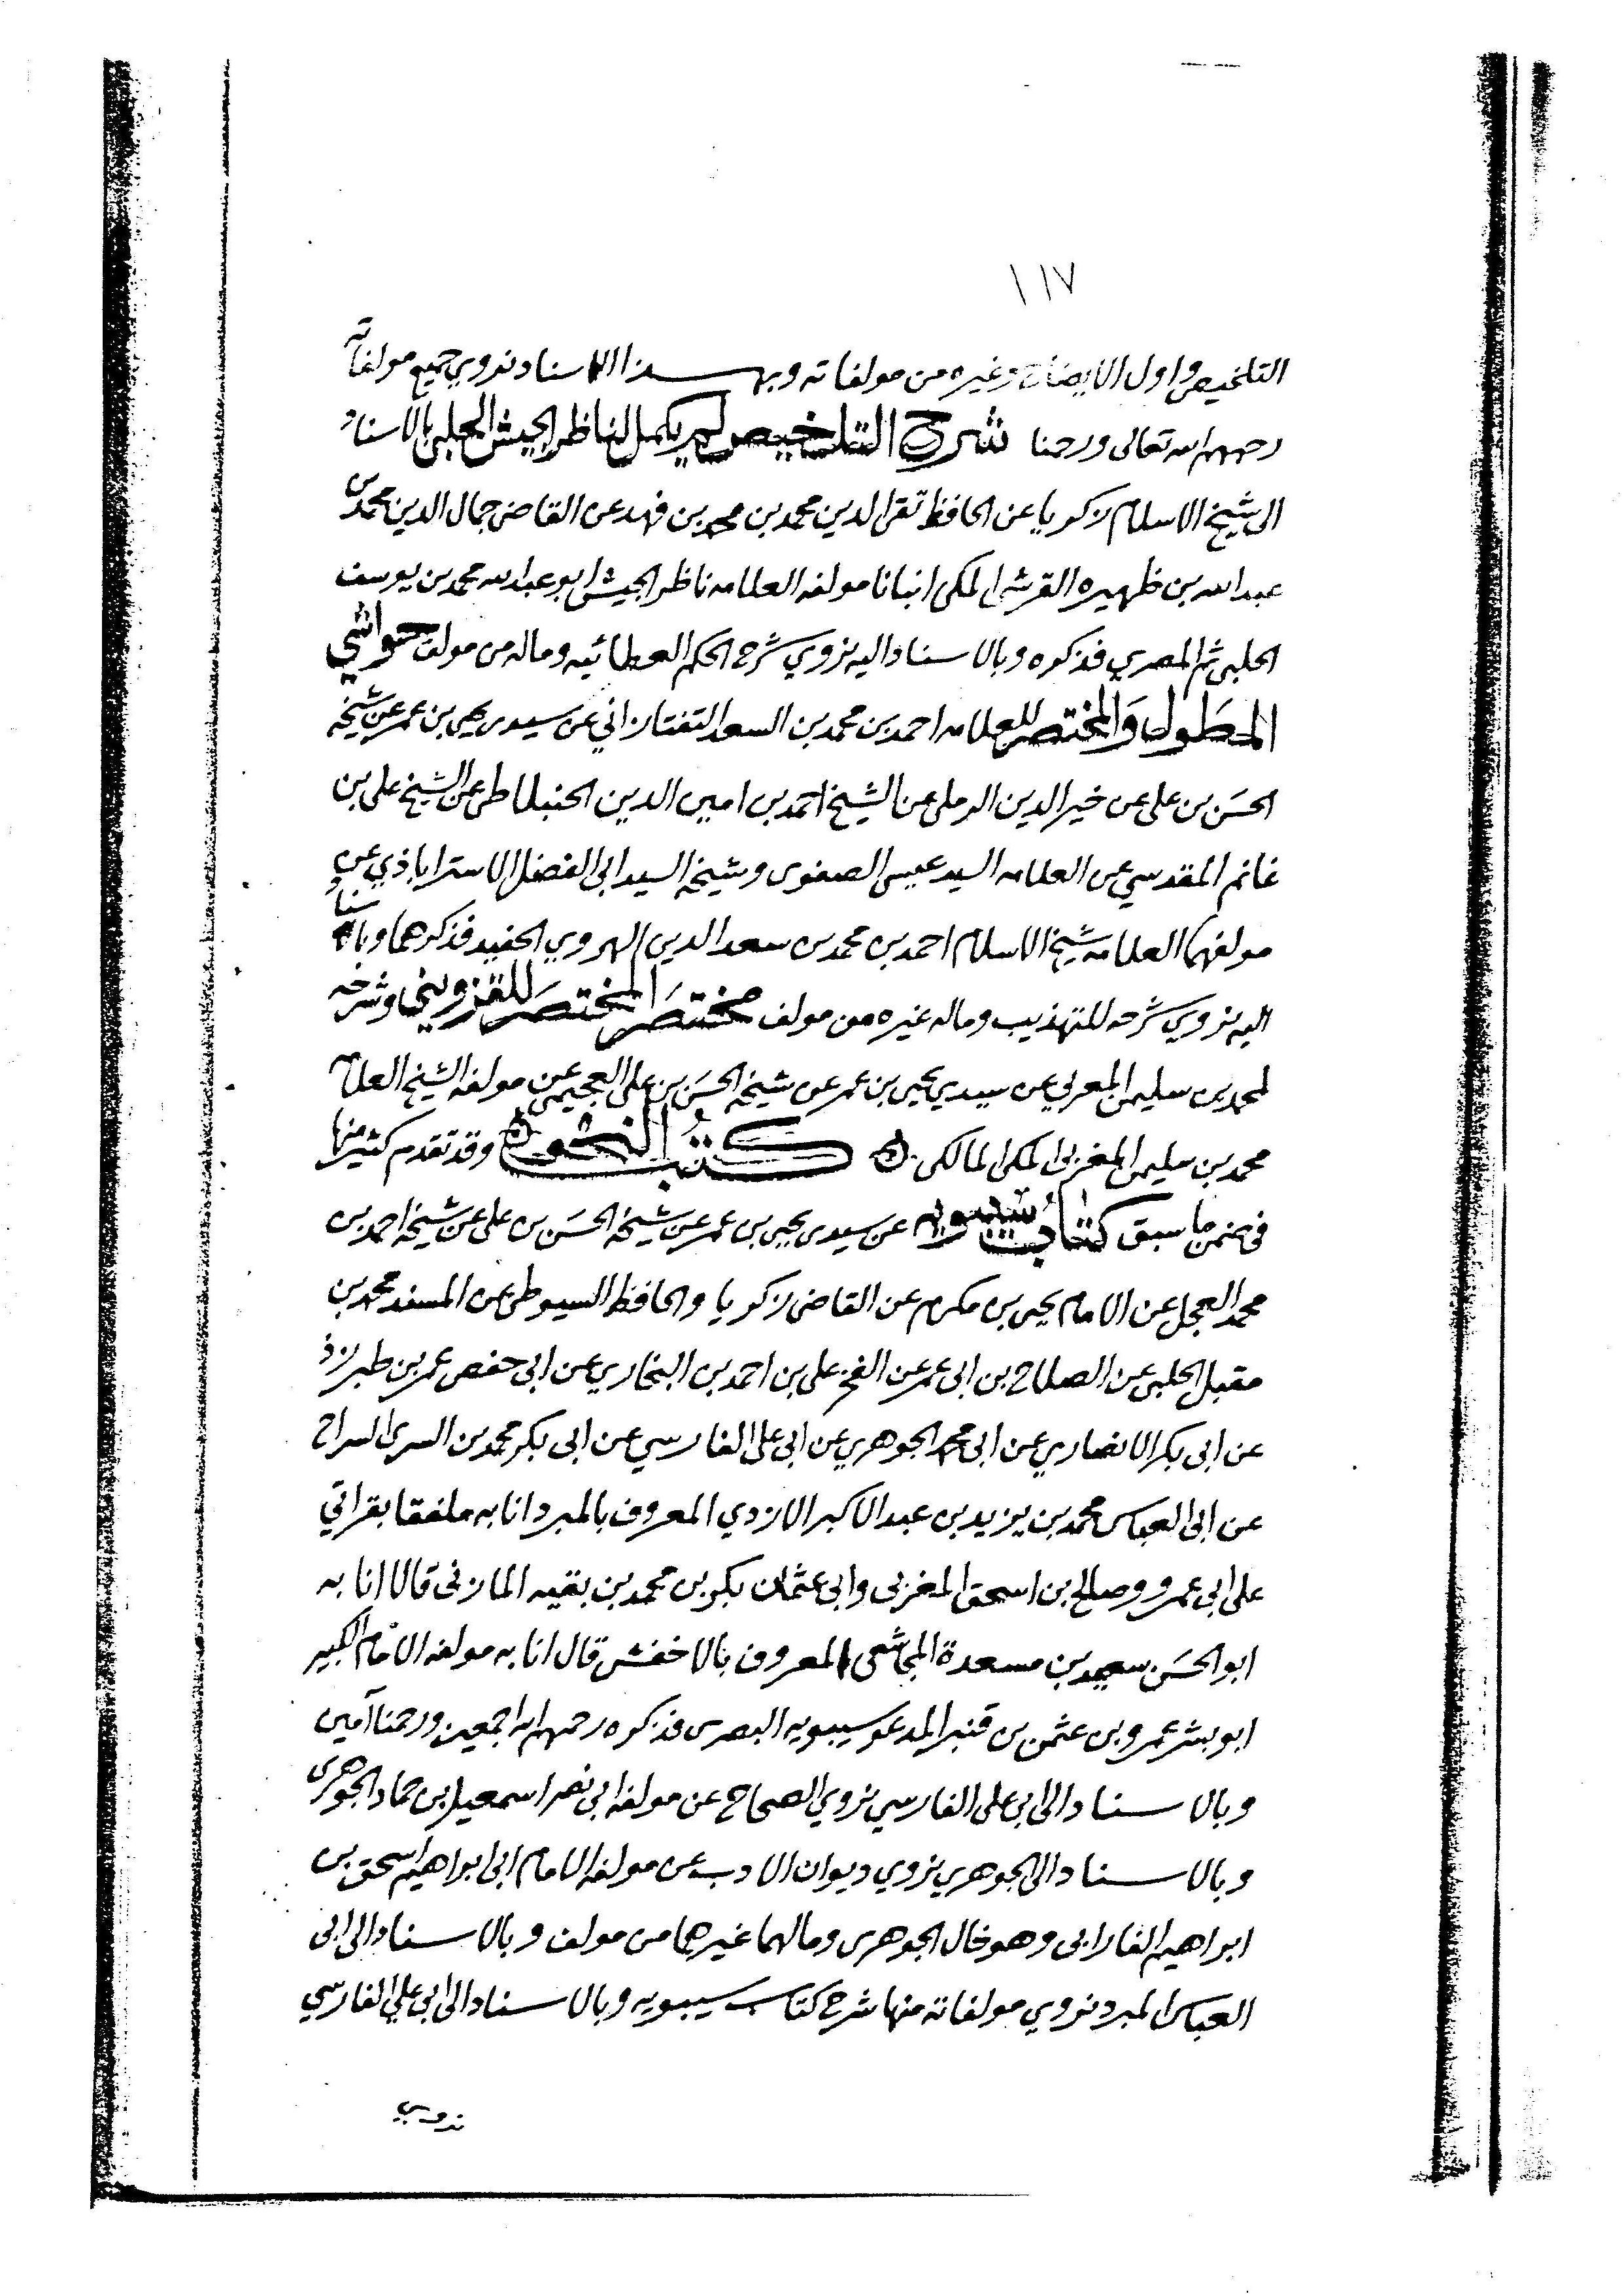 ١١٧
التلخيص واول الايضاح وغيره من مولفاته وبهذا الاسناد نروي جميع مولفاته
رحمهم الله تعالى ورحمنا شرح التلخيص لم يكمل لناظر الجيش الحلبي بالاسناد
الى شيخ الاسلام زكريا عن الحافظ تقي الدين محمد بن محمد بن فهد عن القاضي جمال الدين محمد بن
عبد الله بن ظهيره القرشي المكي انبانا مولفه العلامه ناظر الجيش ابو عبد الله محمد بن يوسف
الحلبي ثم المصري فذكره وبالاسناد اليه نروي شرح الحكم العطائيه وماله من مولف حواشي
المطَول وَالمختصر للعلامه احمد بن محمد بن السعد التفتازاني عن سيدي يحيى بن عمر عن شيخه
الحسَن بن علي عن خير الدين الرملي عن الشيخ احمد بن امين الدين الحنبلاطي عن الشيخ علي بن
غانم المقدسي عن العلامه السيد عيسى الصفوى وشيخه السيد ابي الفضل الاستراباذي عن
مولفهما العلامه شيخ الاسلام احمد بن محمد بن سعد الدين الهروي الحفيد فذكرهما وبالاسناد
اليه نروي شرحه للتهذيب وماله غيره من مولف مختصَر المختصَر للقزويني وشرحه
لمحمد بن سليمن المغربي عن سيدي يحيى بن عمر عن شيخه الحسَن بن علي العجيمي عن مولفه الشيخ العلامه
محمد بن سليمن المغربي المكي المالكي كتُب النحو وقد تقدم كثير منها
في ضمن ما سبق كتاب سيبويه عن سيدي يحيى بن عمر عن شيخه الحسَن بن علي عن شيخه احمد بن
محمد العجل عن الامام يحيى بن مكرم عن القاضي زكريا والحافظ السيوطي عن المسند محمد بن
مقبل الحلبي عن الصلاح بن ابي عمر عن الفخر علي بن احمد بن البخاري عن ابي حفص عمر بن طبرزذ
عن ابي بكر الانصاري عن ابي محمد الجوهري عن ابي علي الفارسي عن ابي بكر محمد بن السري السراج
عن ابي العباس محمد بن يزيد بن عبد الاكبر الازدي المعروف بالمبرد انا به ملفقا بقراتي
على ابي عمرو وصالح بن اسحق المغربي وابي عثمان بكر بن محمد بن بقيه المازني قالا انا به
ابو الحسَن سعيد بن مسعدة المجاشعي المعروف بالاخفش قال انا به مولفه الامام الكبير
ابو بشر عمرو بن عثمن بن قنبر المدعو سيبويه البصري فذكره رحمهم الله اجمعين ورحمنا آمين
وبالاسناد الى ابي علي الفارسي نروي الصحاح عن مولفه ابي نصر اسمعيل بن حماد الجوهري
وبالاسناد الى الجوهري نروي ديوان الادب عن مولفه الامام ابي ابراهيم اسحق بن
ابراهيم الفارابي وهو خال الجوهري ومالهما غيرهما من مولف وبالاسناد الى ابي
العباس المبرد نروي مولفاته منها شرح كتاب سيبويه وبالاسناد الى ابي علي الفارسي
نروي